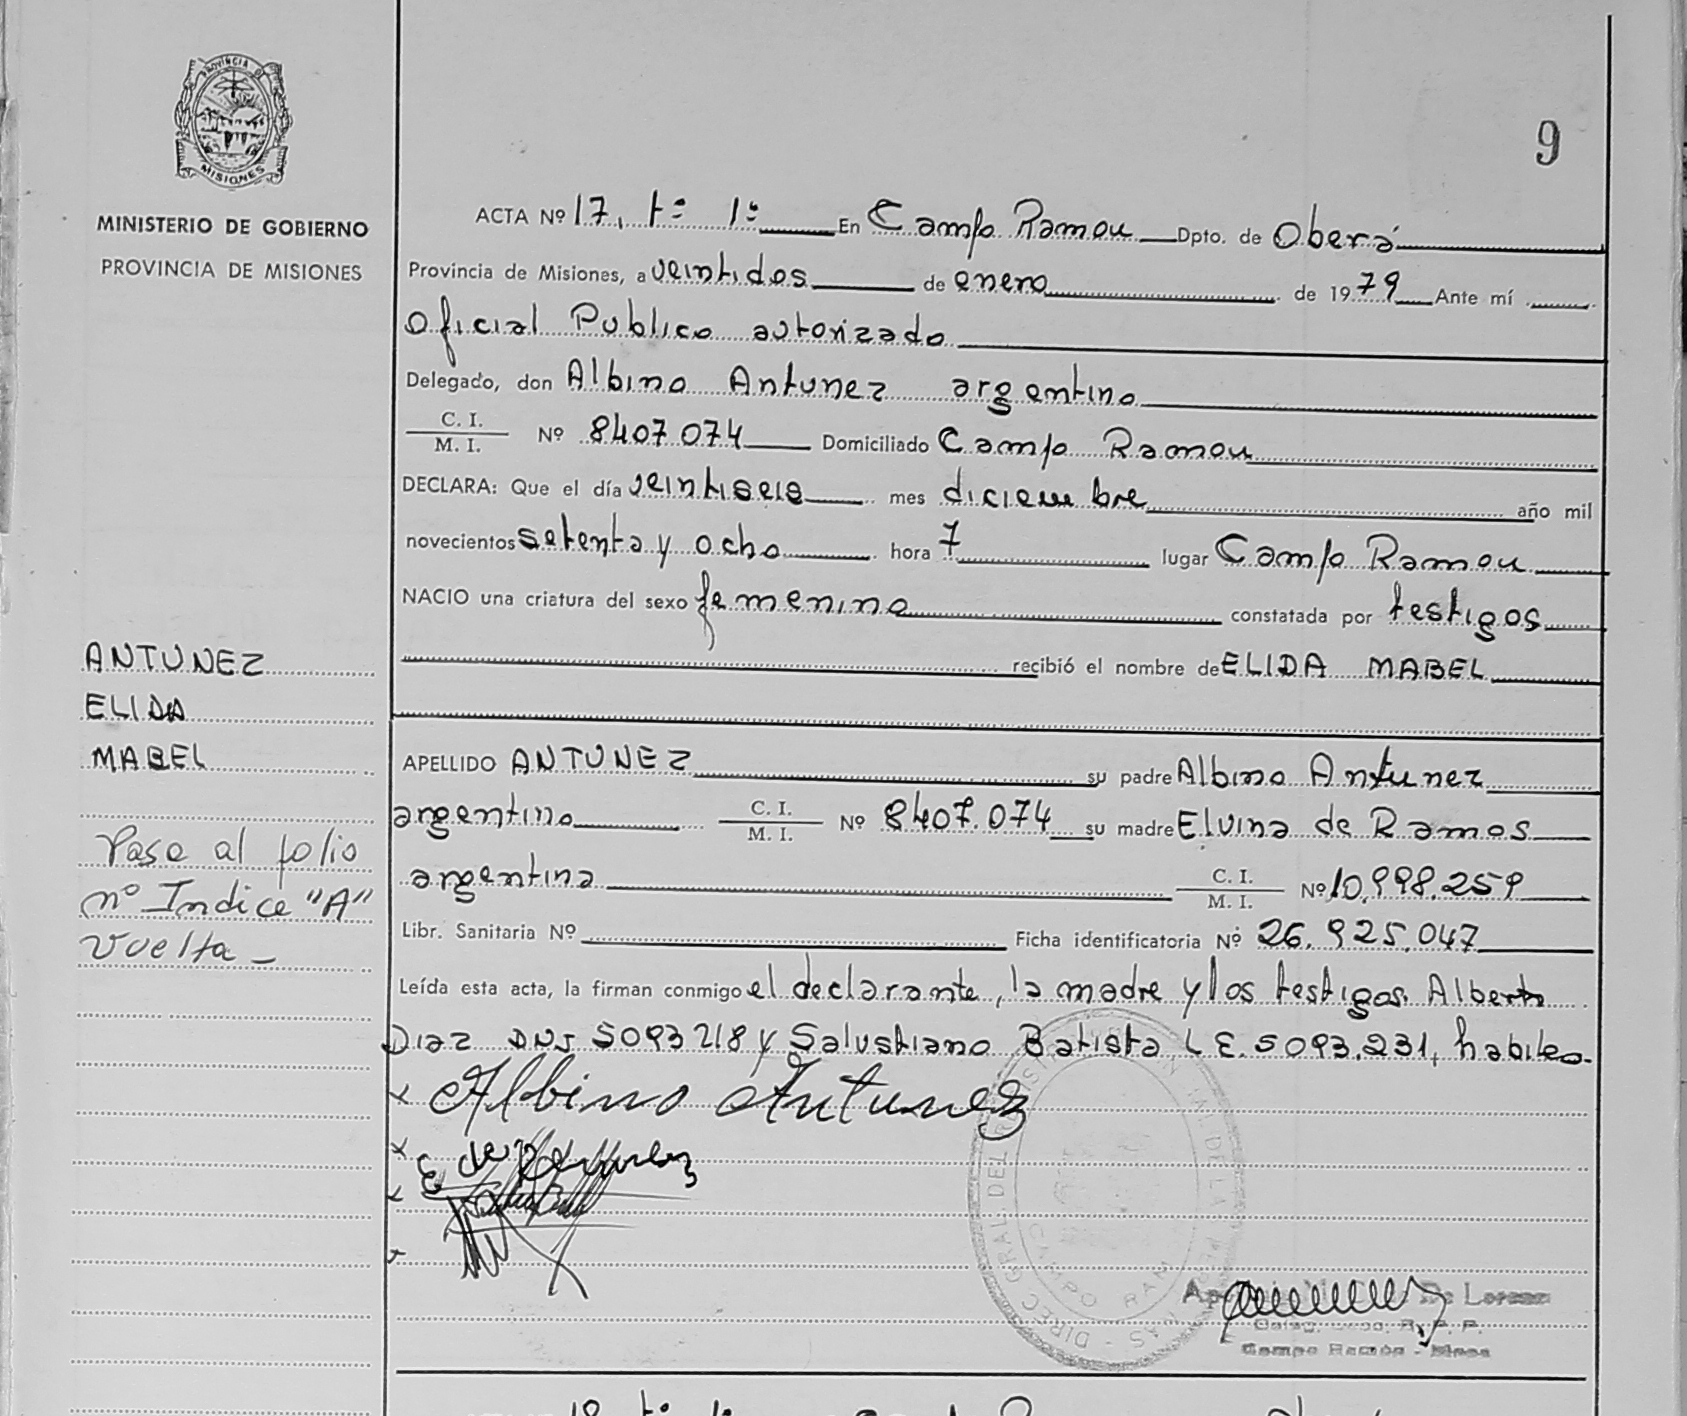 PROVINCIA DE
MISIONES
MINISTERIO DE GOBIERNO
PROVINCIA DE MISIONES
9
ACTA Nº 17, tº 1º En Campo Ramon Dpto. de Oberá
Provincia de Misiones, a veintidos de enero de 1979 Ante mí
Oficial Publico autorizado
Delegado, don Albino Antunez argentino
C. I.
M. I. Nº 8407074 Domiciliado Campo Ramon
DECLARA: Que el día veintiseis mes diciembre año mil
novecientos setenta y ocho hora 7 lugar Campo Ramon
NACIO una criatura del sexo femenino constatada por testigos
recibió el nombre de ELIDA MABEL
ANTUNEZ
ELIDA
MABEL
APELLIDO ANTUNEZ su padre Albino Antunez
argentino C. I.
M. I. Nº 8407.074 su madre Elvina de Ramos
argentina C. I.
M. I. Nº 10.998.259
Libr. Sanitaria Nº Ficha identificatoria Nº 26.925.047
Leída esta acta, la firman conmigo el declarante, la madre y los testigos. Alberto
Diaz DNI 5093218 y Salustiano Batista L E. 5093.231, habiles.
Pase al folio
nº Indice "A"
vuelta -
Albino Antunez
E de
DIREC GRAL DEL
CAMPO RAM
De Lorenz
Campo Ramón - Mnes